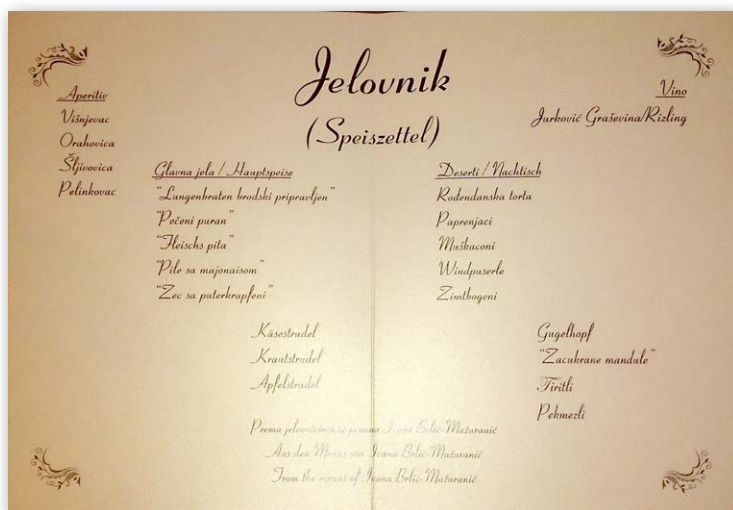 Jelovnik
(Speiszettel)
Aperitiv
Višnjevac
Orahovica
Šljivovica
Pelinkovac
Vino
Jurković Graševina/Rizling
Glavna jela / Hauptspeise
"Lungenbraten brodski pripravljen"
"Pečeni puran"
"Fleischs pita"
"Pile sa majonaisom"
"Zec sa puterkrapfeni"
Käsestrudel
Krautstrudel
Apfelstrudel
Deserti / Nachtisch
Rođendanska torta
Paprenjaci
Muškaconi
Windpuserle
Zimtbogeni
Gugelhopf
"Zacukrane mandule"
Tiritli
Pekmezli
Prema jelovnicima iz Ivana Brlić-Mažuranić
Aus den Menüs von Ivana Brlić-Mažuranić
From the menus of Ivana Brlić-Mažuranić